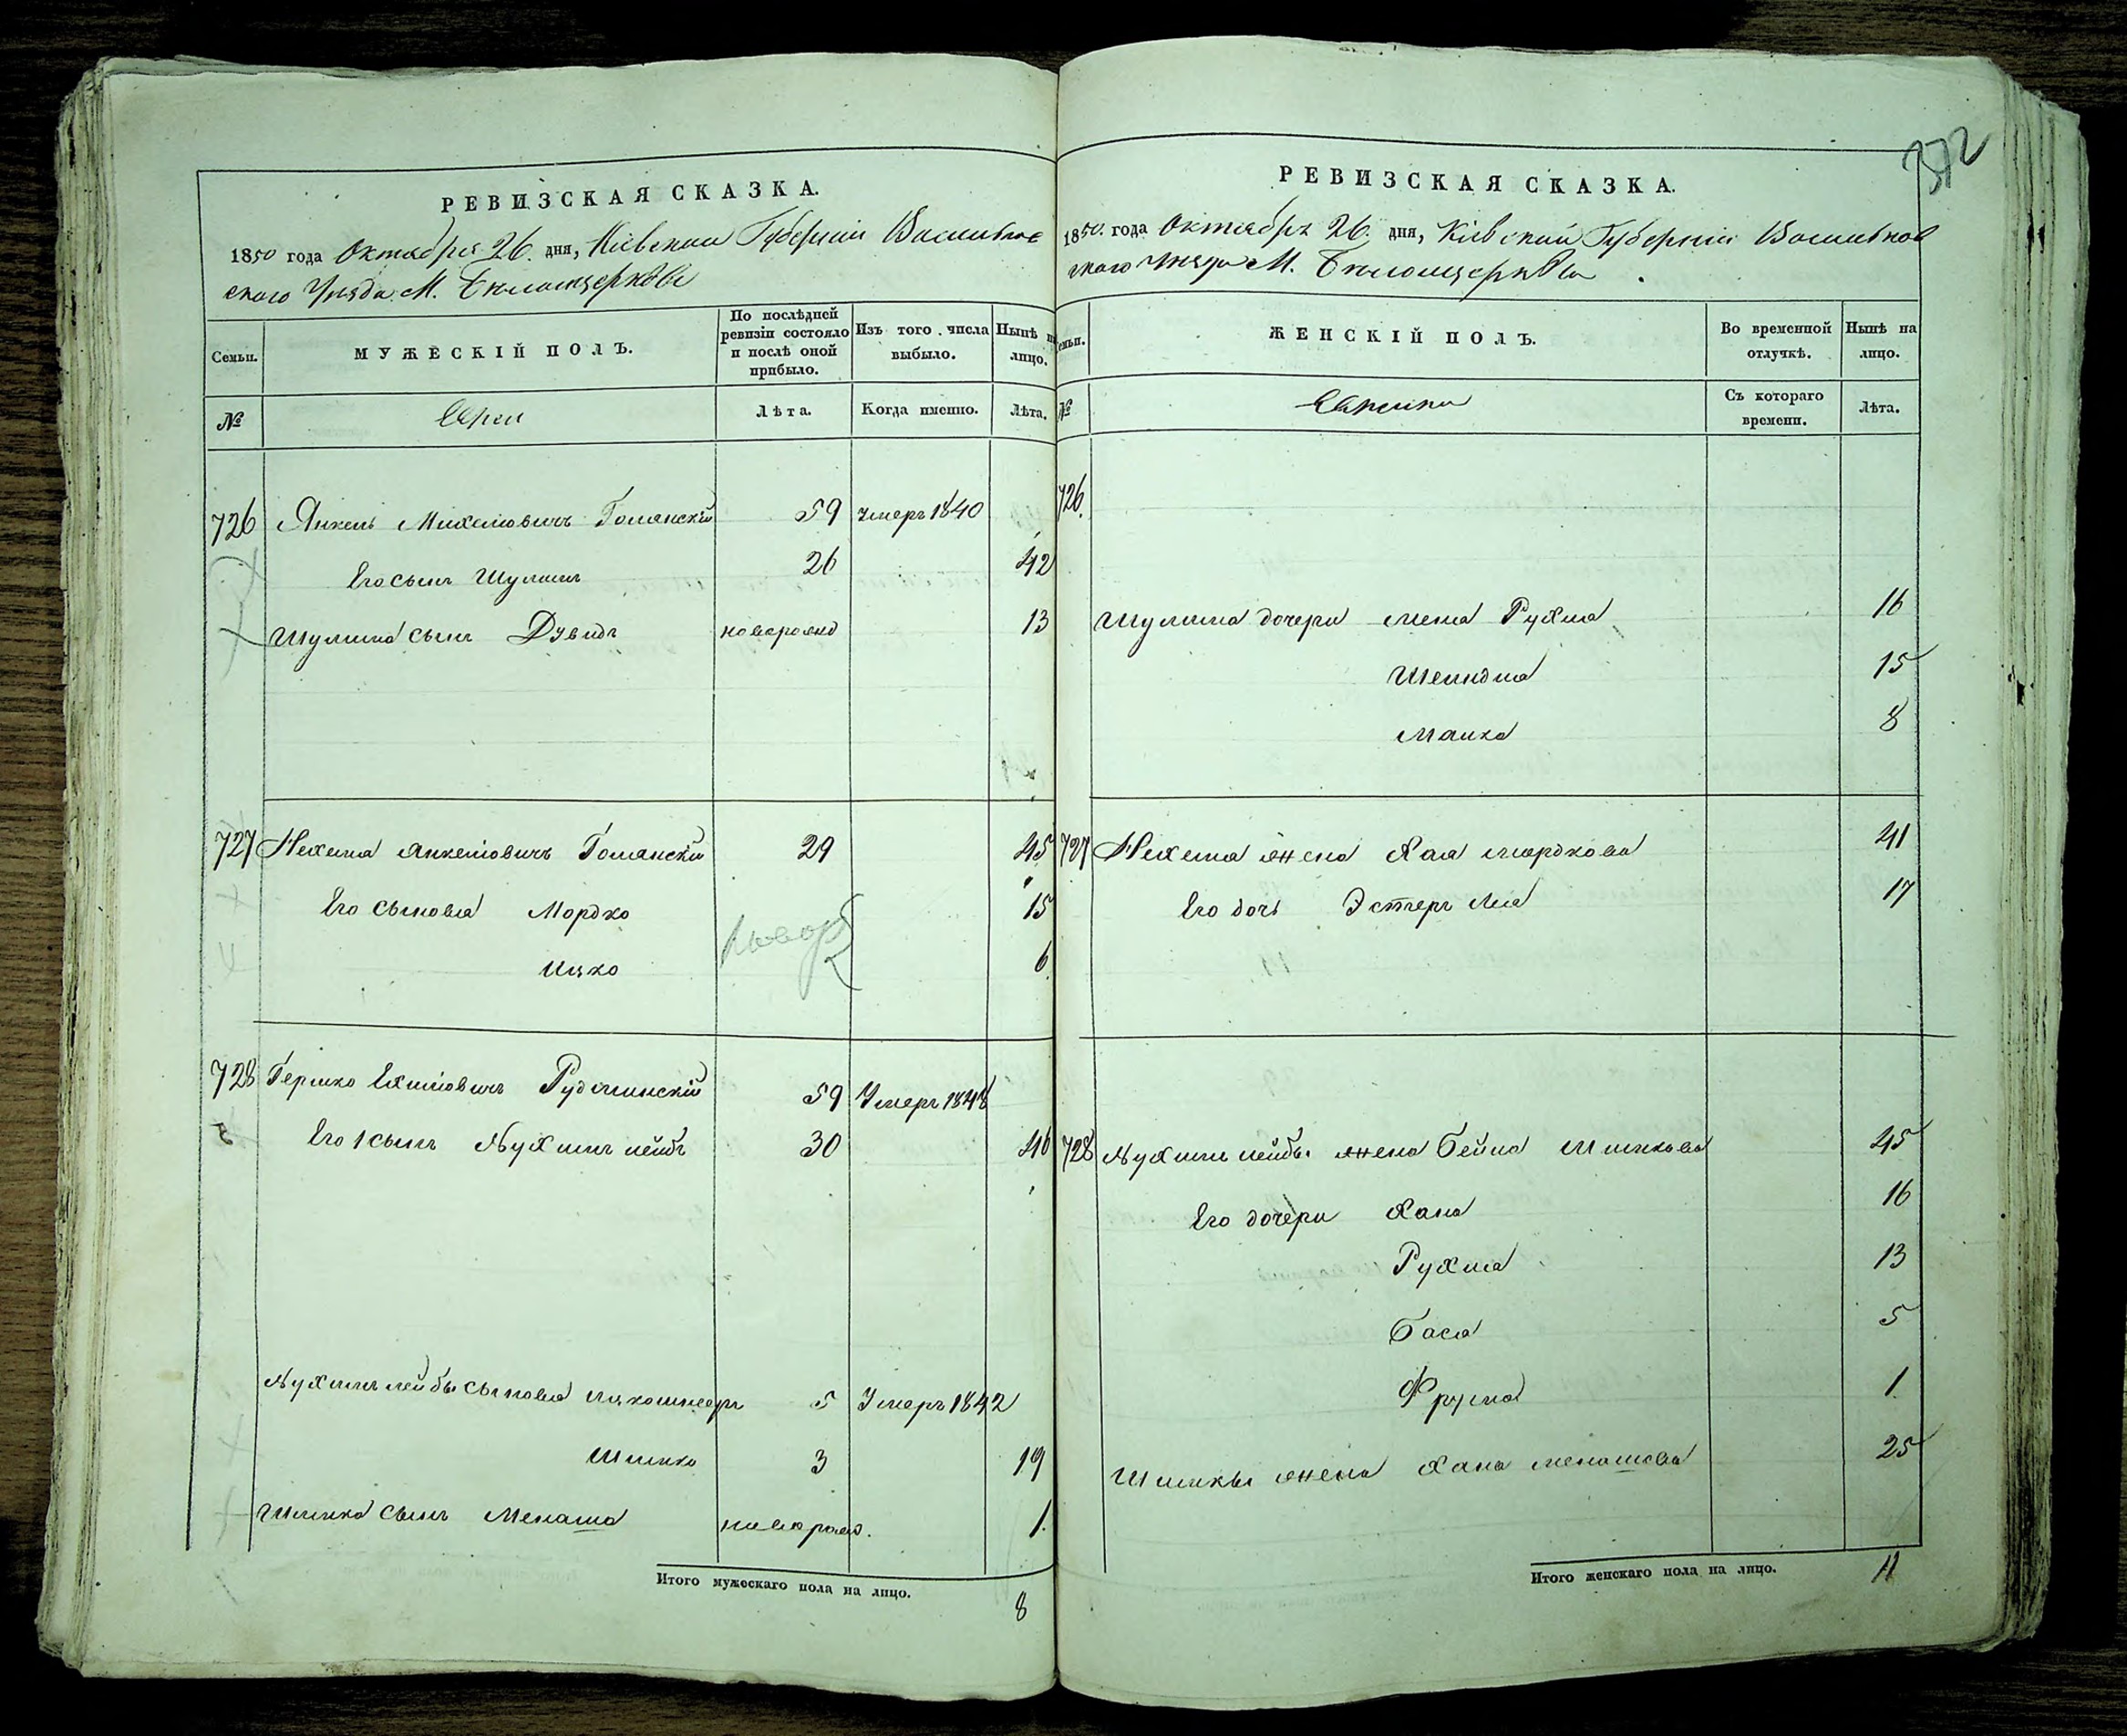 372
РЕВИЗСКАЯ СКАЗКА.
1850 года Октября 26. дня, Кіевской Губерніи Васильков
скаго Уѣзда М. Бѣлоцерковь
Семьи.
МУЖЕСКІЙ ПОЛЪ.
По послѣдней ревизіи состояло и послѣ оной прибыло.
Изъ того числа выбыло.
Нынѣ на лицо.
№
Евреи
Лѣта.
Когда именно.
Лѣта.
726 Янкель Михелiовичъ Голянскій 59 Умеръ 1840
Его сынъ Шулимъ 26 42
Шулима сынъ Дувидъ новорожд 13
727 Нехема Янкелiовичъ Голянскій 29 45
Его сыновья Мордко новор 15
Ицко 6
728 Гершко Рудминскій 59 Умеръ 1848
Его сынъ Нухимъ лейбъ 30 46
Нухимъ лейбы сыновья Ицкошмееръ 5 Умеръ 1842
Шимко 3 19
Шимка сынъ Менаша новорожд. 1.
Итого мужескаго пола на лицо.
8
РЕВИЗСКАЯ СКАЗКА.
1850 года Октября 26. дня, Кіевской Губерніи Васильков
скаго Уѣзда М. Бѣлоцерковь
Семьи.
ЖЕНСКІЙ ПОЛЪ.
Во временной отлучкѣ.
Нынѣ на лицо.
№
Еврейки
Съ котораго времени.
Лѣта.
726.
Шулима дочери Рухля 16
Шейндля 15
Малка 8
727 Нехема жена Хая Мордкова 41
Его дочь Эстеръ Лея 17
728 Нухимъ лейбы жена Бейла Шимкова 45
Его дочери Хана 16
Рухля 13
Бася 5
Фрума 1
Шимки жена Хана Менашова 25
Итого женскаго пола на лицо.
11